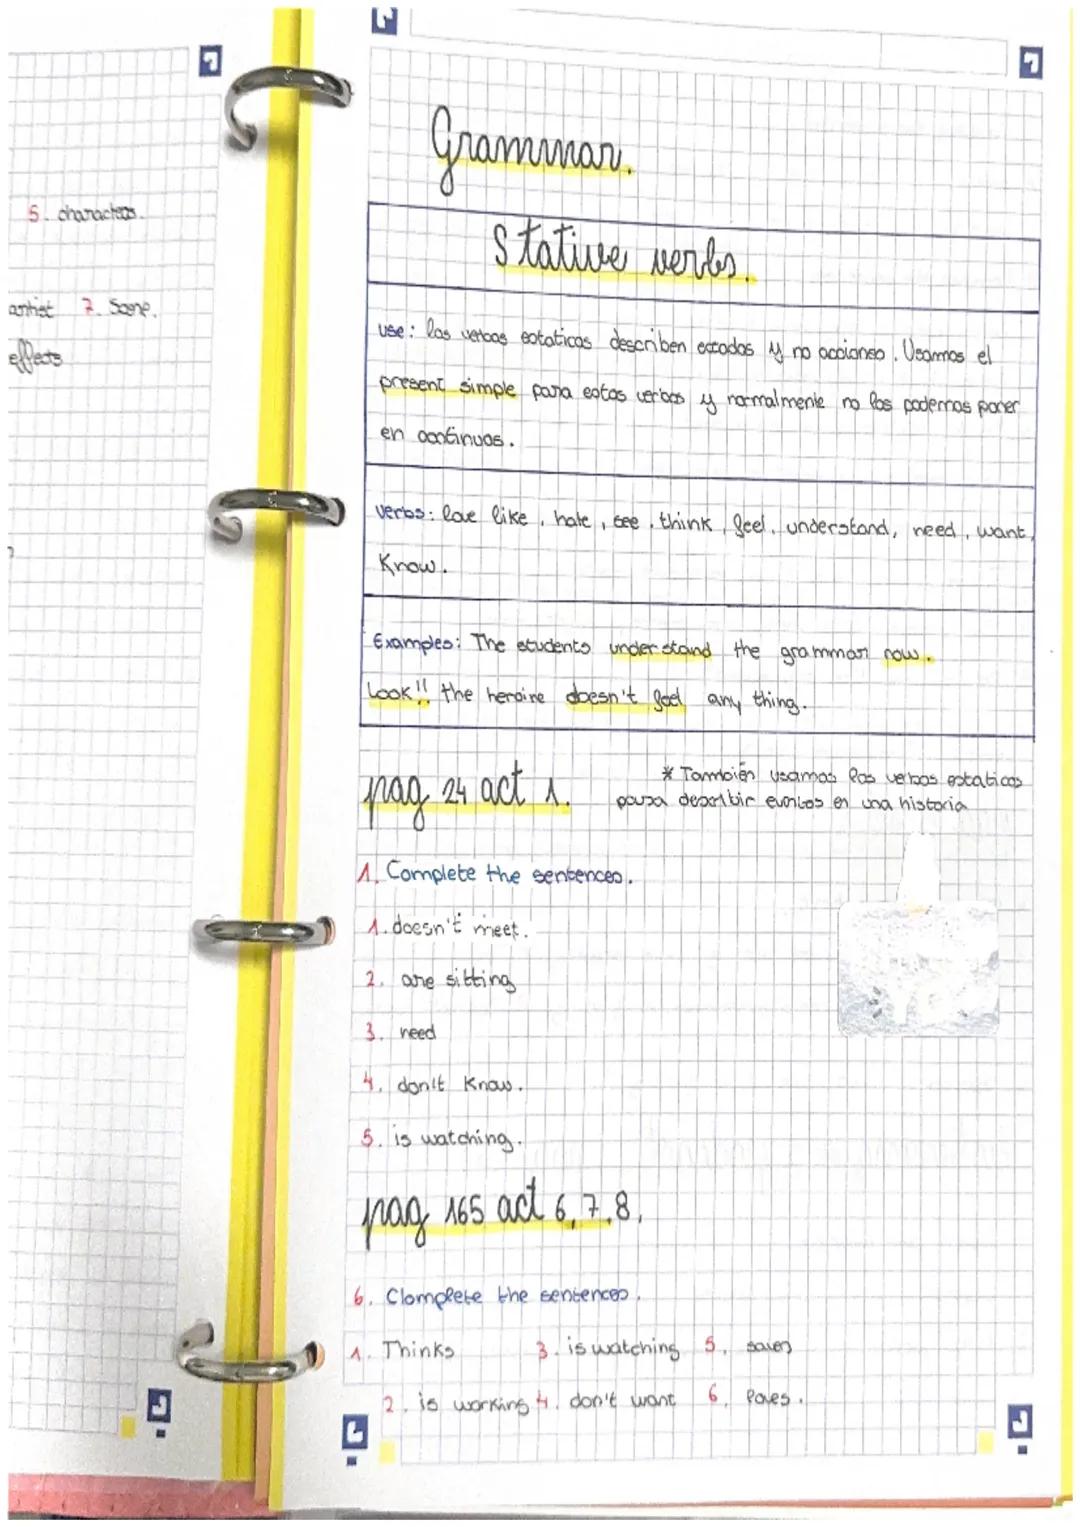 5. characters.
artist 7. Scene.
effects
Grammar.
Stative verbs.
use: los verbos estaticos describen estados y no acciones. Usamos el
present simple para estos verbos y normalmente no los podemos poner
en continuos.
verbs: love like, hate, see, think, feel, understand, need, want,
Know.
Examples: The students understand the grammar now.
Look!! the heroine doesn't feel any thing.
pag 24 act 1.
* También usamos los verbos estaticos
para describir eventos en una historia
1. Complete the sentences.
1. doesn't meet.
2. are sitting
3. need
4. don't know.
5. is watching.
pag 165 act 6, 7, 8.
6. Clomplete the sentences.
1. Thinks 3. is watching 5. saves
2. is working 4. don't want 6. loves.